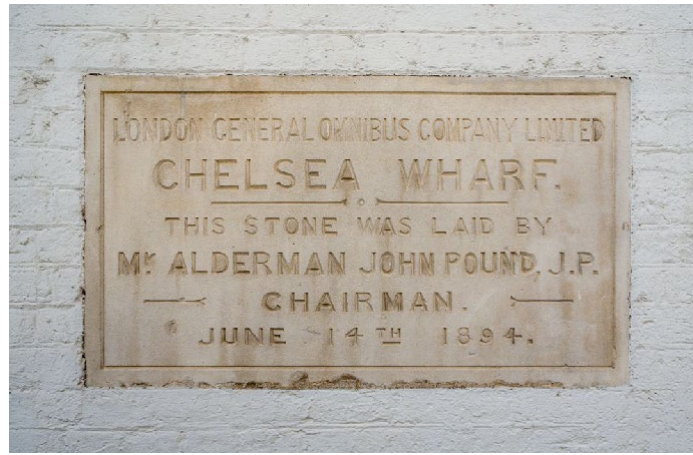 LONDON GENERAL OMNIBUS COMPANY LIMITED
CHELSEA WHARF.
THIS STONE WAS LAID BY
Mr ALDERMAN JOHN POUND, J.P.
CHAIRMAN.
JUNE 14TH 1894.